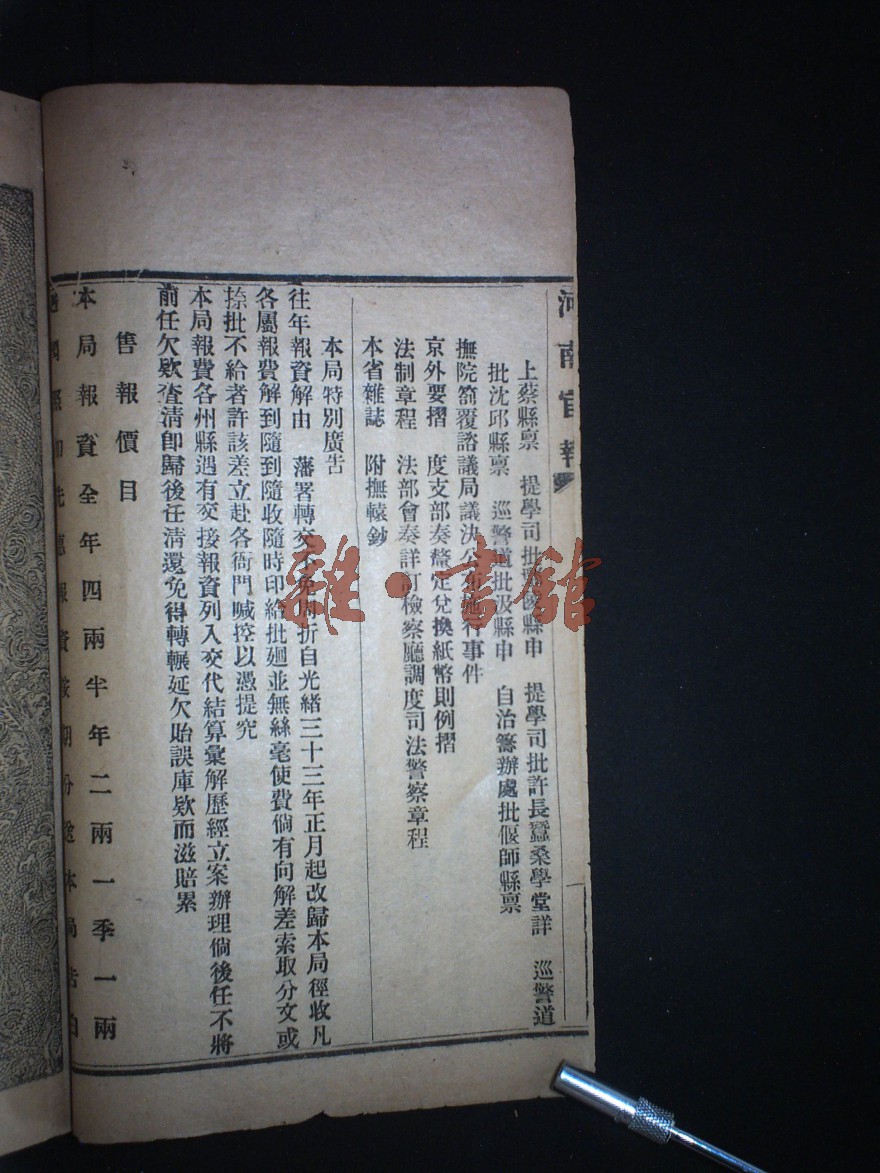 河南官報
上蔡縣禀　提學司批　縣申　提學司批許長蠶桑學堂詳　巡警道
批沈邱縣禀　巡警道批　縣申　自治籌辦處批偃師縣禀
撫院箚覆諮議局議決公布　事件
京外要摺　度支部奏釐定兌換紙幣則例摺
法制章程　法部會奏詳訂檢察廳調度司法警察章程
本省雜誌　附撫轅鈔
本局特別廣告
往年報資解由　藩署轉交不免周折自光緒三十三年正月起改歸本局徑收凡
各屬報費解到隨到隨收隨時印給批廻並無絲毫使費倘有向解差索取分文或
捺批不給者許該差立赴各衙門喊控以憑提究
本局報費各州縣遇有交接報資列入交代結算彙解歷經立案辦理倘後任不將
前任欠欵查清卽歸後任清還免得轉輾延欠貽誤庫欵而滋賠累
售報價目
本局報資全年四兩半年二兩一季一兩
先惠報資按期分送本局告白
雜·書館